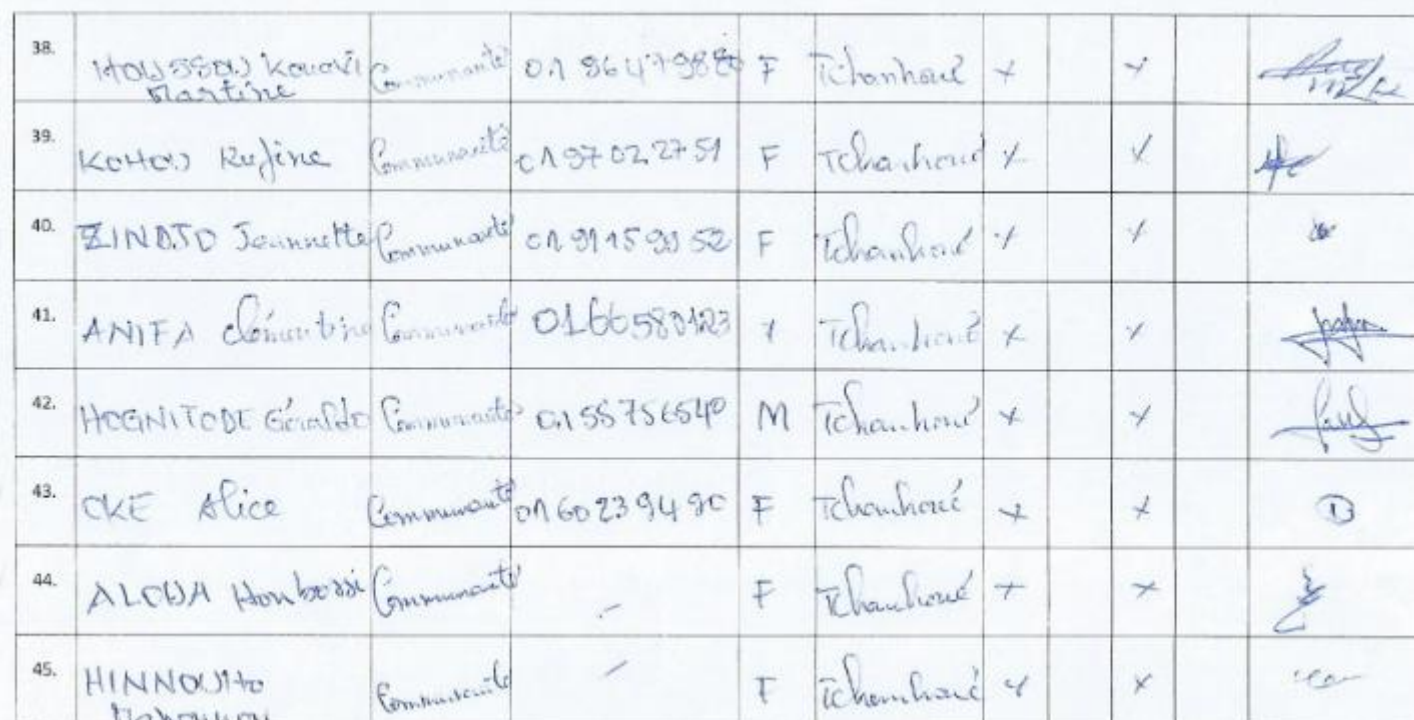 38. HOUSSOU Kouovi Martine Communauté 01 96479880 F Tchanhoué x x
39. KOHOU Rufine Communauté 01 97 02 27 51 F Tchanhoué x x
40. ZINDJO Jeannette Communauté 01 91 15 99 52 F Tchanhoué x x
41. ANIFA Clémentine Communauté 0166580123 Tchanhoué x x
42. HOGNITODE Géraldo Communauté 01 55 756540 M Tchanhoué x x
43. OKE Alice Communauté 01 60 23 94 90 F Tchanhoué x x
44. ALOHA Communauté - F Tchanhoué x x
45. HINNOUHO Communauté - F Tchanhoué x x